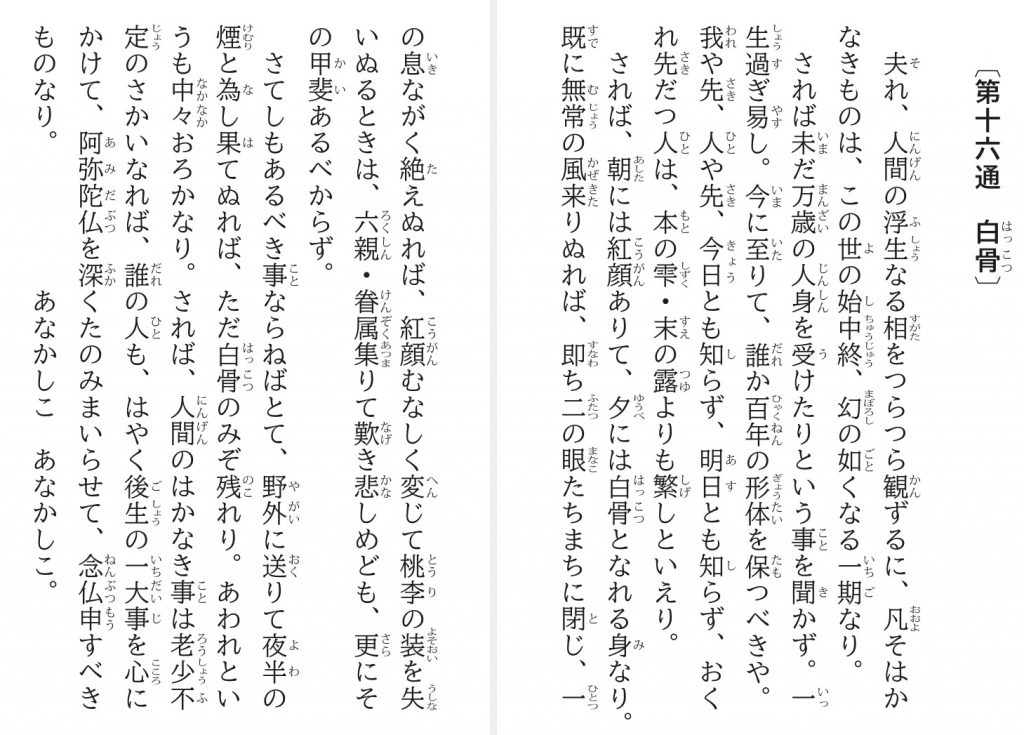 〔第十六通　白骨〕
夫れ、人間の浮生なる相をつらつら観ずるに、凡そはか
なきものは、この世の始中終、幻の如くなる一期なり。
されば未だ万歳の人身を受けたりという事を聞かず。一
生過ぎ易し。今に至りて、誰か百年の形体を保つべきや。
我や先、人や先、今日とも知らず、明日とも知らず、おく
れ先だつ人は、本の雫・末の露よりも繁しといえり。
されば、朝には紅顔ありて、夕には白骨となれる身なり。
既に無常の風来りぬれば、即ち二の眼たちまちに閉じ、一
の息ながく絶えぬれば、紅顔むなしく変じて桃李の装を失
いぬるときは、六親・眷属集りて歎き悲しめども、更にそ
の甲斐あるべからず。
さてしもあるべき事ならねばとて、野外に送りて夜半の
煙と為し果てぬれば、ただ白骨のみぞ残れり。あわれとい
うも中々おろかなり。されば、人間のはかなき事は老少不
定のさかいなれば、誰の人も、はやく後生の一大事を心に
かけて、阿弥陀仏を深くたのみまいらせて、念仏申すべき
ものなり。　あなかしこ　あなかしこ。